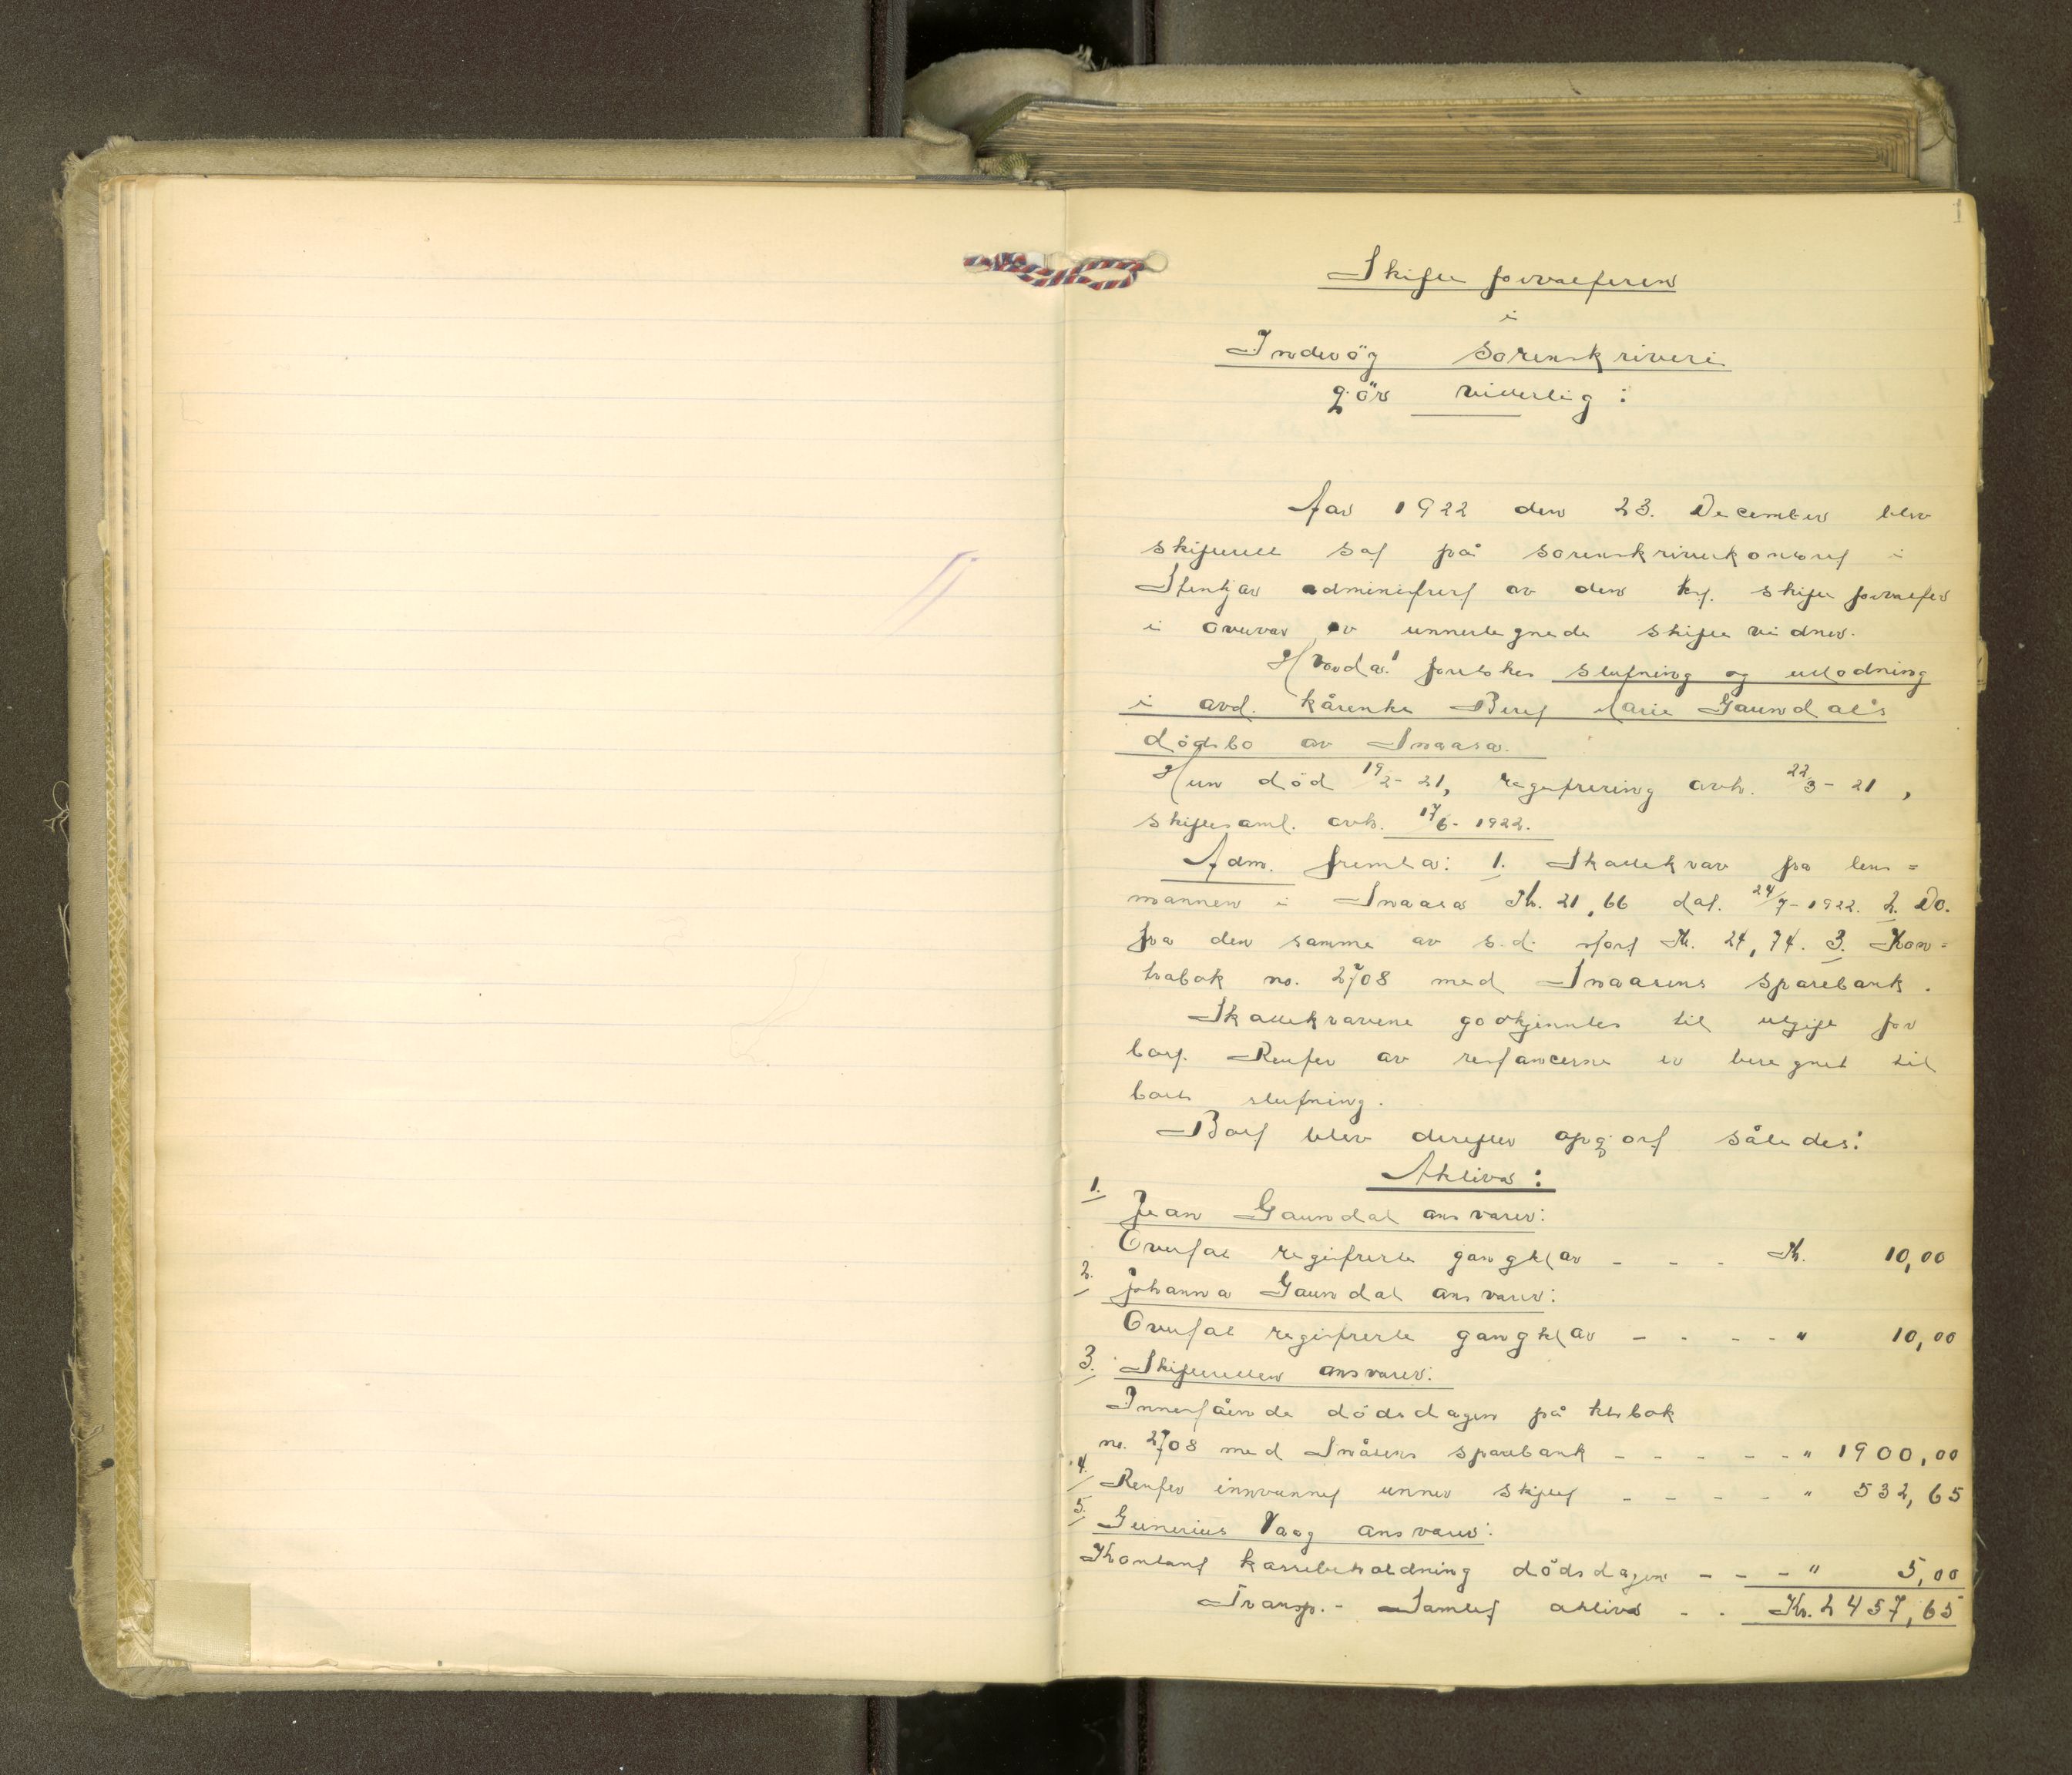 1
Skifteforvalteren
i
Inderöy sorenskriveri
gjör vitterlig:
Aar 1922 den 23. December blev
skifterett sat på sorenskriverkontoret i
Stenkjær administrert av den kst. skifteforvalter
i overvær av unnertegnede skiftevidner.
Hvorda: foretokes slutning og utlodning
i avd. kårenke Beret Marie Gaundal's
dödsbo av Snaasa.
Hun död 19/2-21, registrering avh. 22/3-21,
skiftesaml. avh. 17/6-1922.
Adm. fremla: 1. Skattekrav fra lens=
mannen i Snaasa Kr. 21,66 dat. 24/7-1922. 2. Do.
fra den samme av s.d. stort Kr. 24,74. 3. Kon=
trabok no. 2708 med Snaasens sparebank.
Skattekravene godkjenntes til utgift for
boet. Renter av restancerne er beregnet til
boets slutning.
Boet blev derefter opgjort således:
Aktiva:
1.
Jean Gaundal ansvarer:
Overtat registrerte gangklær - - - Kr. 10,00
2.
Johanna Gaundal ansvarer:
Overtat registrerte gangklær - - - - " 10,00
3.
Skifteretten ansvarer:
Innestående dödsdagen på ktrbok
no. 2708 med Snåsens sparebank - - - - - " 1900,00
4.
Renter innvunnet unner skiftet - - - - - " 532,65
5.
Gunerius Vaag ansvarer:
Kontant kassebeholdning dödsdagen - - - " 5,00
Transp. - Samlet aktiva - - Kr. 2457,65